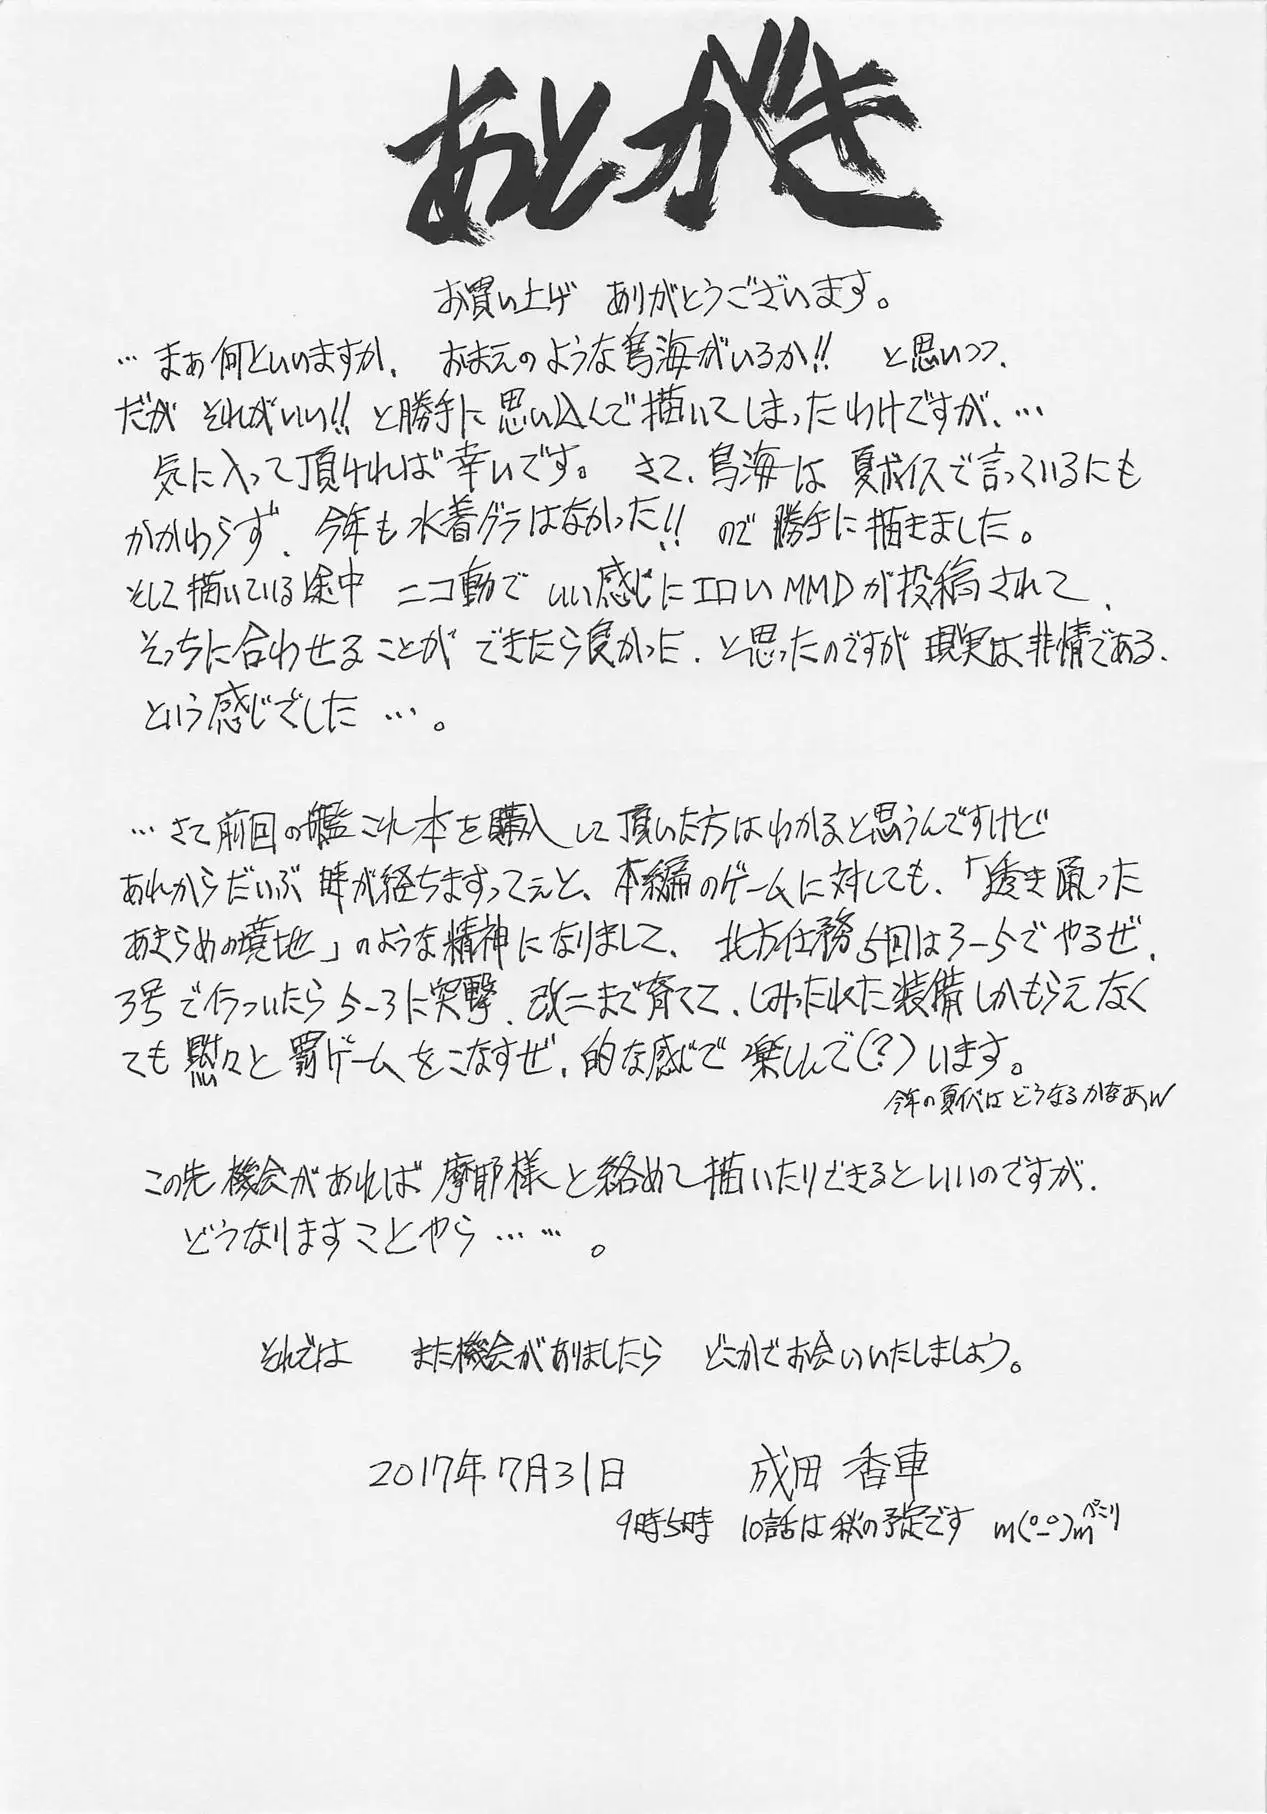 あとがき
お買い上げ ありがとうございます。
…まぁ何といいますか、 おまえのような鳥海がいるか!! と思いつつ、
だが それがいい!! と勝手に思い込んで描いてしまったわけですが、…
気に入って頂ければ幸いです。 さて、鳥海は夏ボイスで言っているにも
かかわらず、今年も水着グラはなかった!! ので勝手に描きました。
そして描いている途中 ニコ動で いい感じにエロいMMDが投稿されて、
そっちに合わせることが できたら良かった、と思ったのですが 現実は非情である、
という感じでした…。
…さて前回の艦これ本を購入して頂いた方はわかると思うんですけど
あれからだいぶ 時が経ちますってぇと、本編のゲームに対しても、「透き通った
あきらめの境地」のような精神になりまして、 北方任務5回は3-5でやるぜ、
3号でイラついたら5-3に突撃、改二まで育てて、しみったれた装備しかもらえなく
ても黙々と罰ゲームをこなすぜ、的な感じで楽しんで(?)います。
今年の夏イベはどうなるかなあw
この先 機会があれば 摩耶様と絡めて描いたりできるといいのですが、
どうなりますことやら……。
それでは また機会がありましたら どこかでお会いいたしましょう。
2017年7月31日 成田 香車
9時5時 10話は秋の予定です m(°_°)m ぺこり